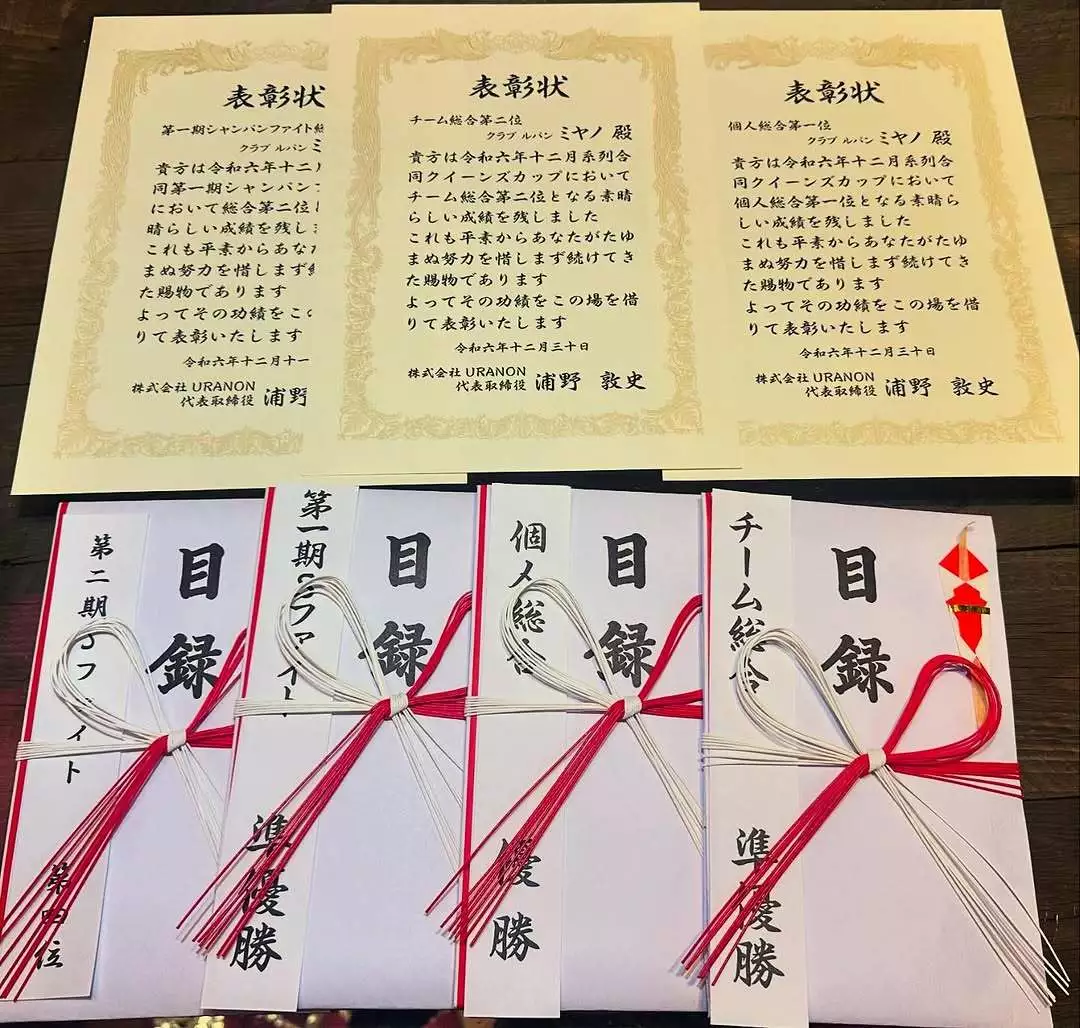 表彰状
第一期シャンパンファイト
クラブ ルパン
貴方は令和六年十二
同第一期シャンパン
において総合第二位
晴らしい成績を残し
これも平素からあな
まぬ努力を惜しまず
た賜物であります
よってその功績をこ
りて表彰いたします
令和六年十二月十一
株式会社 URANON
代表取締役 浦野
表彰状
チーム総合第二位
クラブ ルパン ミヤノ 殿
貴方は令和六年十二月系列合
同クイーンズカップにおいて
チーム総合第二位となる素晴
らしい成績を残しました
これも平素からあなたがたゆ
まぬ努力を惜しまず続けてき
た賜物であります
よってその功績をこの場を借
りて表彰いたします
令和六年十二月三十日
株式会社 URANON
代表取締役 浦野 敦史
表彰状
個人総合第一位
クラブ ルパン ミヤノ 殿
貴方は令和六年十二月系列合
同クイーンズカップにおいて
個人総合第一位となる素晴ら
しい成績を残しました
これも平素からあなたがたゆ
まぬ努力を惜しまず続けてき
た賜物であります
よってその功績をこの場を借
りて表彰いたします
令和六年十二月三十日
株式会社 URANON
代表取締役 浦野 敦史
目録
第二期 ファイト 第四位
目録
第一期 ファイト 準優勝
目録
個人総合 優勝
目録
チーム総合 準優勝